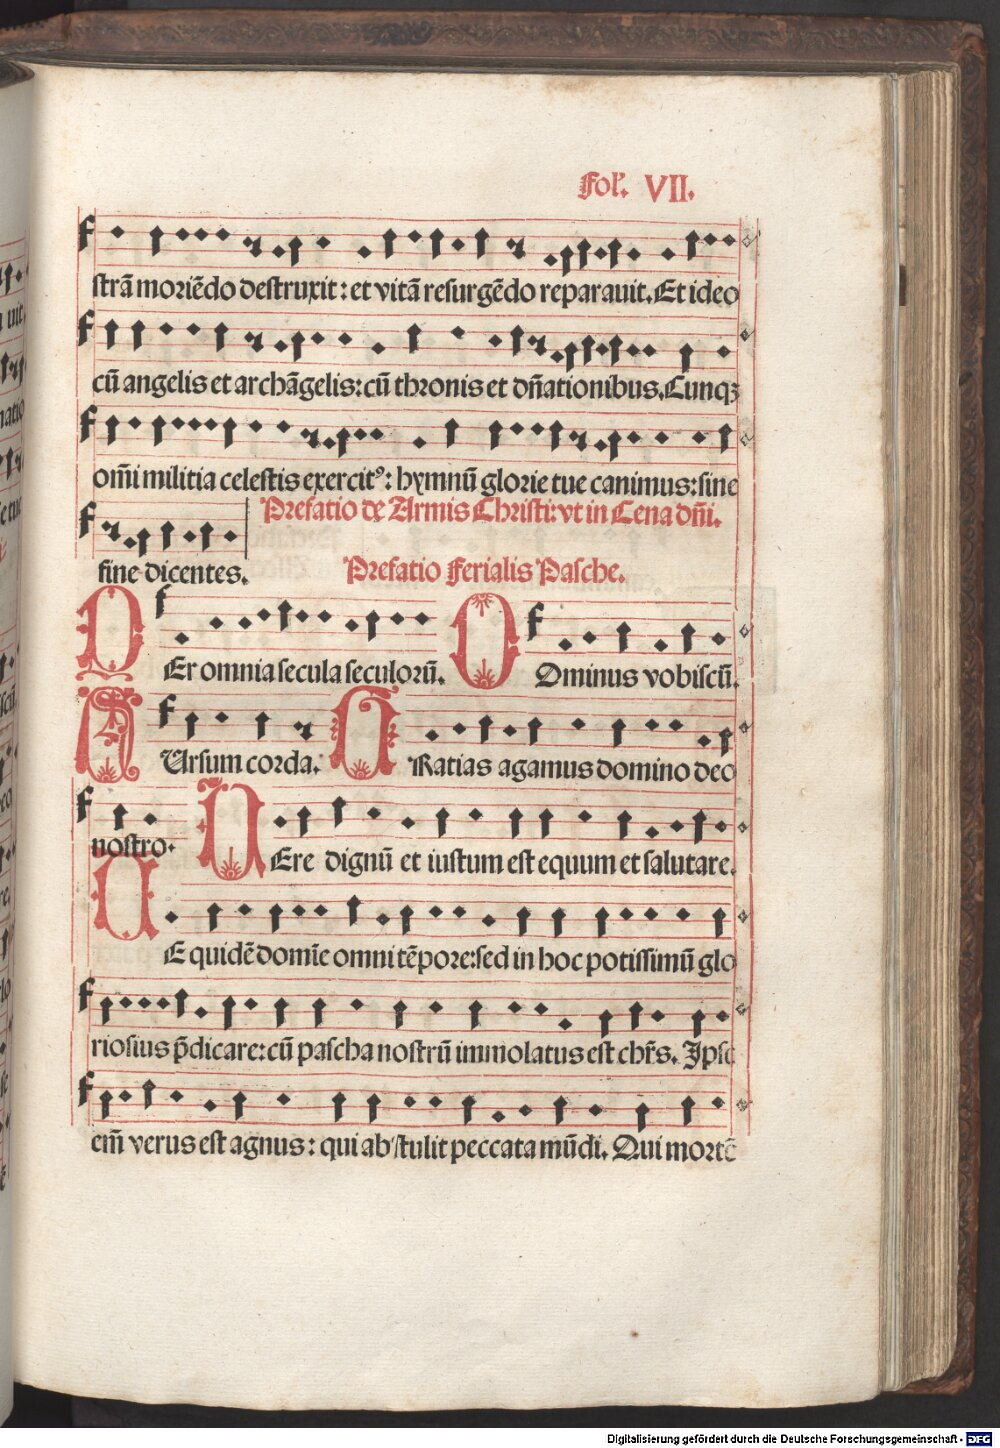 Fol'. VII.
strā moriēdo destruxit: et vitā resurgēdo reparauit. Et ideo
cū angelis et archāgelis: cū thronis et dn̄ationibus. Cunqꝫ
om̄i militia celestis exercitꝰ: hymnū glorie tue canimus: sine
Prefatio de Armis Christi: vt in Cena dn̄i.
fine dicentes.
Prefatio Ferialis Pasche.
PEr omnia secula seculorū. DOminus vobiscū.
SUrsum corda. GRatias agamus domino deo
nostro. VEre dignū et iustum est equum et salutare.
TE quidē domīe omni tēpore: sed in hoc potissimū glo
riosius p̄dicare: cū pascha nostrū immolatus est chr̄s. Ipse
em̄ verus est agnus: qui abstulit peccata mūdi. Qui mortē
Digitalisierung gefördert durch die Deutsche Forschungsgemeinschaft - DFG